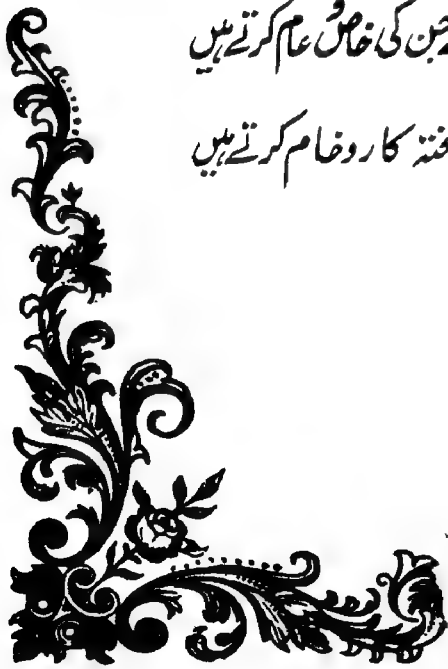 جن کی خاص و عام کرتے ہیں
پختہ کار و خام کرتے ہیں